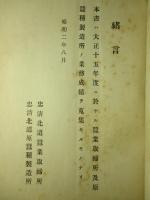 緒言
本書ハ大正十五年度ニ於ケル蚕業取締所及原
蚕種製造所ノ業務成績ヲ蒐集セルモノナリ
昭和二年八月
忠清北道蚕業取締所
忠清北道原蚕種製造所